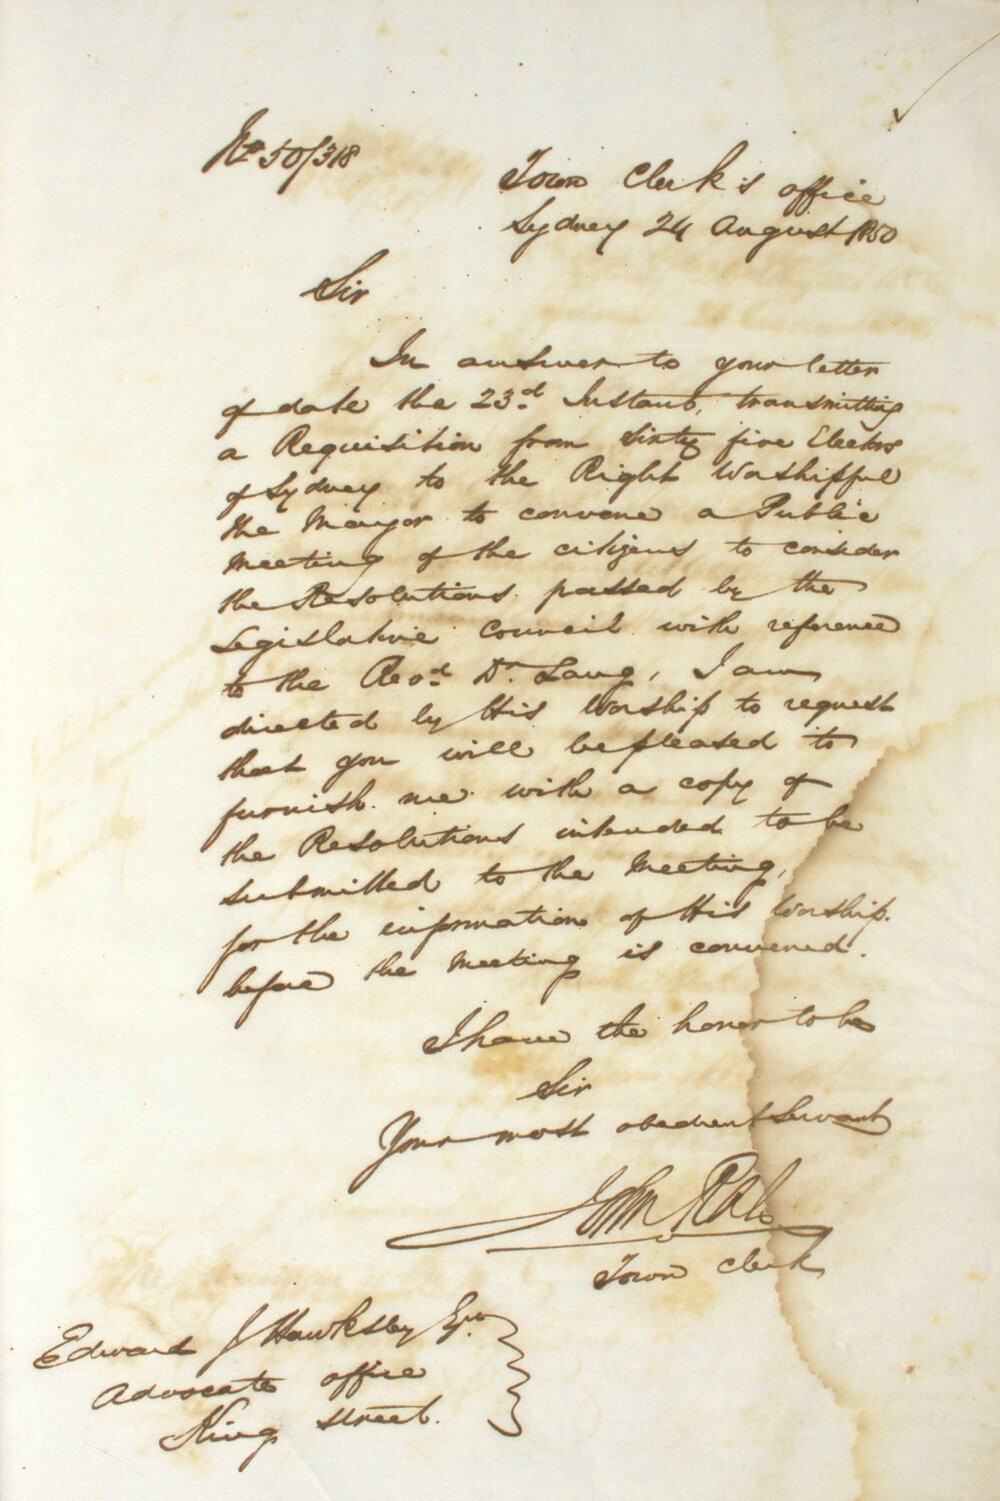 No 50/318
Town Clerk's office
Sydney 24 August 1850
Sir
In answer to your letter
of date the 23d Instant, transmitting
a Requisition from sixty five Electors
of Sydney to the Right Worshipful
the Mayor to convene a Public
Meeting of the citizens to consider
the Resolutions passed by the
Legislative Council with reference
to the Revd Dr Lang, I am
directed by His Worship to request
that you will be pleased to
furnish me with a copy of
the Resolutions intended to be
submitted to the Meeting,
for the information of His Worship
before the Meeting is convened.
I have the honor to be
Sir
Your most obedient Servant
John Rae
Town Clerk
Edward J Hawksley Esqr
Advocate office
King Street.